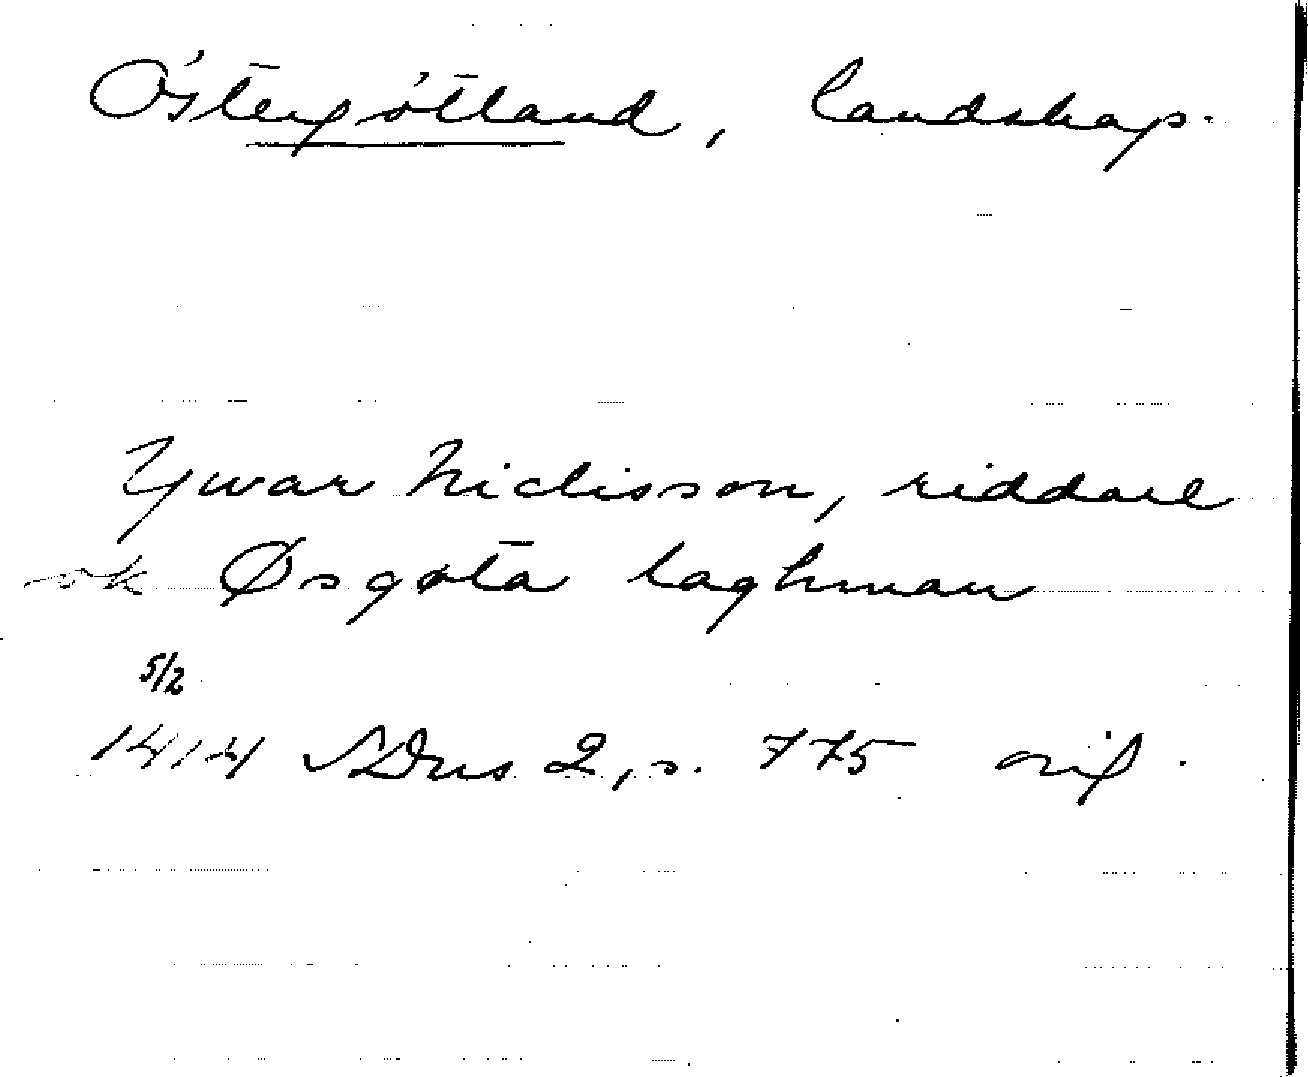 Östergötland, landskap.
Ywar Niclisson, riddare
ok Øsgøta laghman
5/2
1414 SDns 2, s. 775 orig.